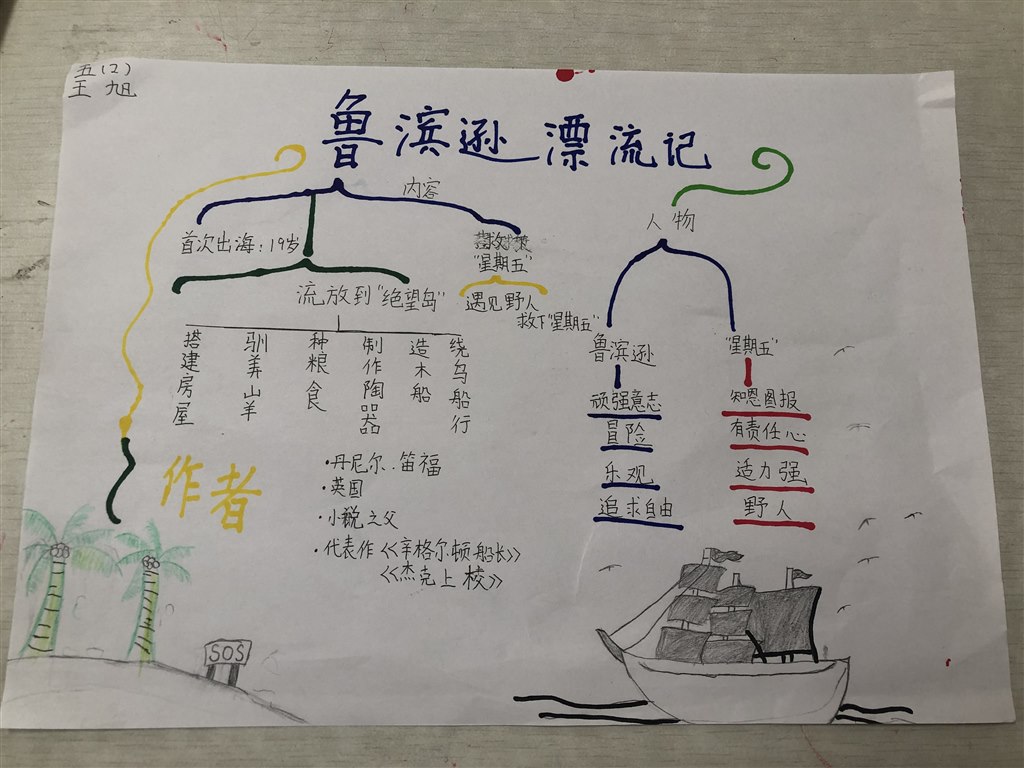 五(2)
王旭
鲁滨逊漂流记
内容
首次出海:19岁
"星期五"
流放到"绝望岛"
遇见野人
救下"星期五"
搭建房屋
驯养山羊
种粮食
制作陶器
造木船
绕岛船行
人物
鲁滨逊
顽强意志
冒险
乐观
追求自由
"星期五"
知恩图报
有责任心
适力强
野人
作者
·丹尼尔·笛福
·英国
·小说之父
·代表作《辛格尔顿船长》
《杰克上校》
SOS